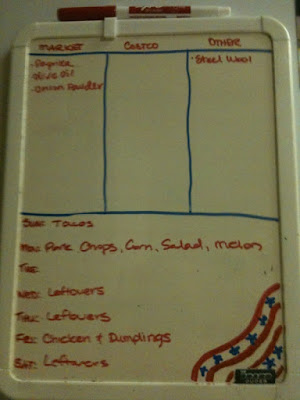 MARKET COSTCO OTHER
· Paprika · Steel Wool
· Olive Oil
· Onion Powder
Sun: Tacos
Mon: Pork Chops, Corn, Salad, Melon
Tue:
Wed: Leftovers
Thur: Leftovers
Fri: Chicken & Dumplings
Sat: Leftovers